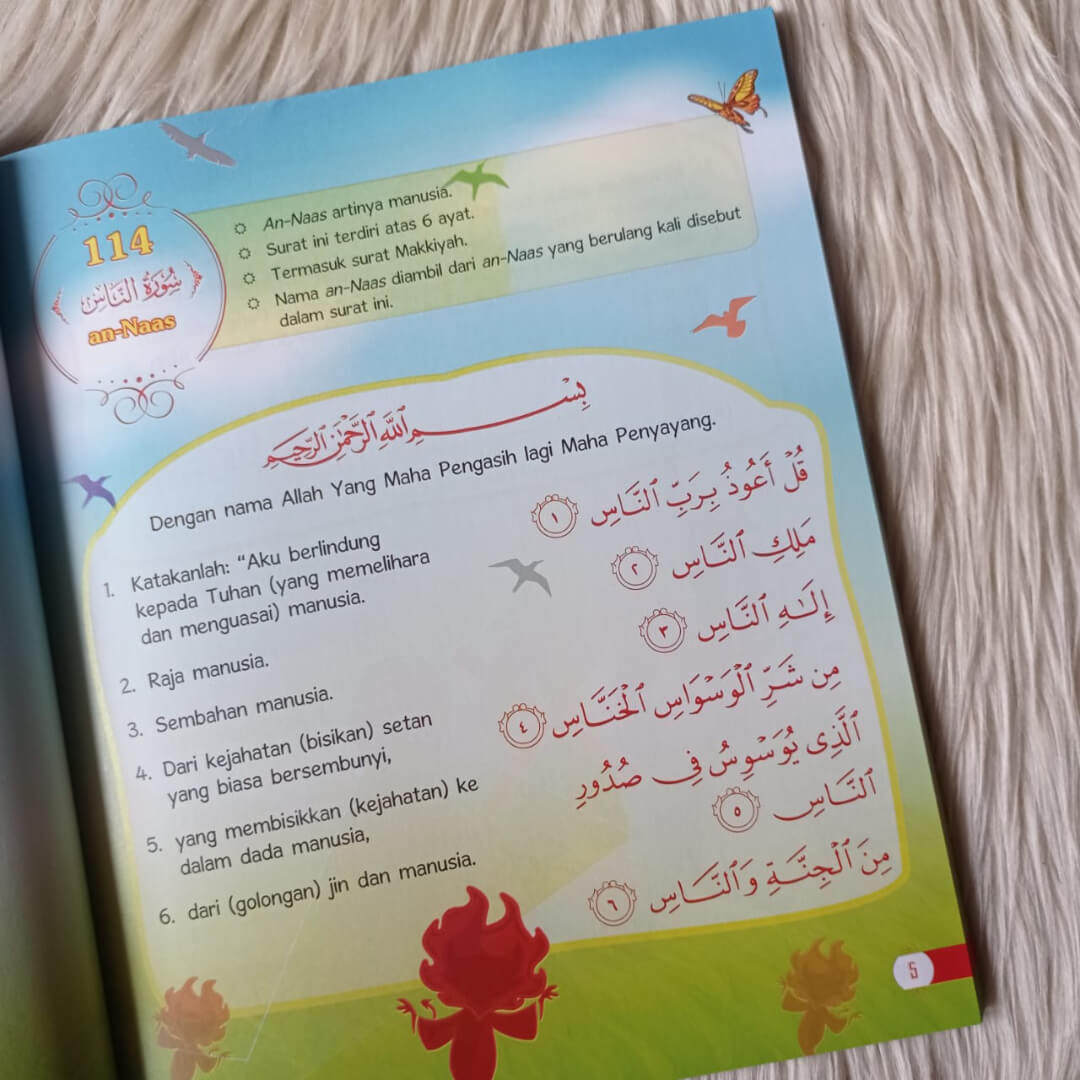 114
سُورَةُ النَّاسِ
an-Naas
An-Naas artinya manusia.
Surat ini terdiri atas 6 ayat.
Termasuk surat Makkiyah.
Nama an-Naas diambil dari an-Naas yang berulang kali disebut
dalam surat ini.
بِسْمِ اللَّهِ الرَّحْمَٰنِ الرَّحِيمِ
Dengan nama Allah Yang Maha Pengasih lagi Maha Penyayang.
قُلْ أَعُوذُ بِرَبِّ النَّاسِ ١
مَلِكِ النَّاسِ ٢
إِلَٰهِ النَّاسِ ٣
مِن شَرِّ الْوَسْوَاسِ الْخَنَّاسِ ٤
الَّذِى يُوَسْوِسُ فِى صُدُورِ
النَّاسِ ٥
مِنَ الْجِنَّةِ وَالنَّاسِ ٦
1. Katakanlah: “Aku berlindung
kepada Tuhan (yang memelihara
dan menguasai) manusia.
2. Raja manusia.
3. Sembahan manusia.
4. Dari kejahatan (bisikan) setan
yang biasa bersembunyi,
5. yang membisikkan (kejahatan) ke
dalam dada manusia,
6. dari (golongan) jin dan manusia.
5